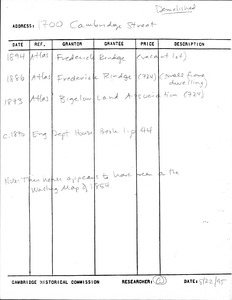 Demolished
ADDRESS: 1700 Cambridge Street
DATE REF. GRANTOR GRANTEE PRICE DESCRIPTION
1894 Atlas Frederick Rindge (vacant lot)
1886 Atlas Frederick Rindge (724) (small frame dwelling)
1873 Atlas Bigelow Land Association (724)
c.1870 Eng Dept House Book 1 p. 44
Note: This house appears to have been on the
Walling Map of 1854
CAMBRIDGE HISTORICAL COMMISSION RESEARCHER: DATE: 5/22/95